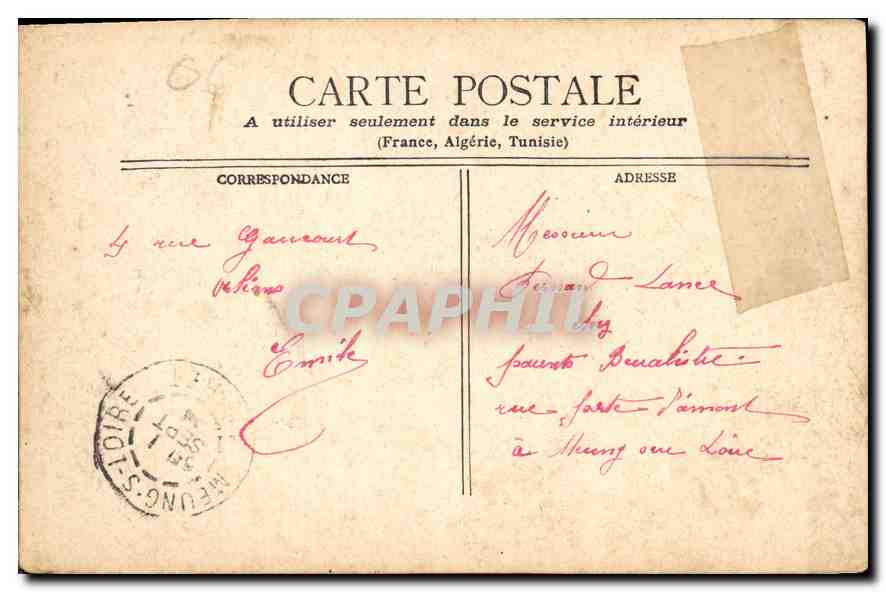 06
CARTE POSTALE
A utiliser seulement dans le service intérieur
(France, Algérie, Tunisie)
CORRESPONDANCE
ADRESSE
4 rue Gaucourt
Emile
Messieur
Fernand Lance
chez
parents Benabistre
rue porte d'amont
à Meung sur Loire
CPAPHIL
MEUNG-S-LOIRE
SEPT